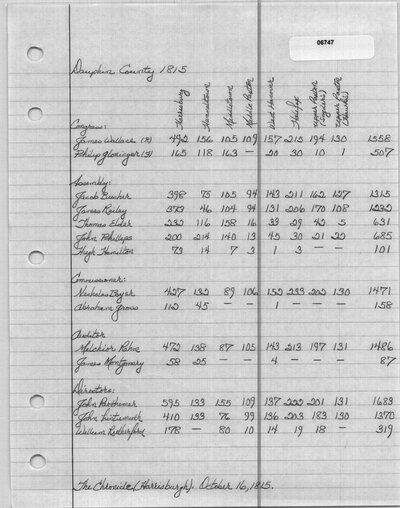 06747
Dauphin County 1815
Harrisburg Hummelstown Middletown Middle Paxton West Hanover Halifax Upper Paxton (Snyders) Upper Paxton
Congress:
James Wallace (R) 492 156 105 109 157 215 194 130 1558
Philip Gloninger (F) 165 118 163 — 20 30 10 1 507
Assembly:
Jacob Bucher 398 75 105 94 143 211 162 127 1315
James Reiley 373 46 104 94 131 206 170 108 1232
Thomas Elder 232 116 158 16 33 29 42 5 631
John Phillips 200 214 140 13 45 30 21 22 685
Hugh Hamilton 73 14 7 3 1 3 — — 101
Commissioner:
Nicholas Boyer 427 132 89 106 152 233 202 130 1471
Abraham Gross 112 45 — — 1 — — — 158
Auditor
Melchior Rahm 472 138 87 105 143 213 197 131 1486
James Montgomery 58 25 — — 4 — — — 87
Directors:
John Parthemer 595 133 155 109 137 222 201 131 1683
John 410 133 76 99 136 203 183 130 1370
William Rutherford 178 — 80 10 14 19 18 — 319
The Chronicle (Harrisburgh). October 16, 1815.